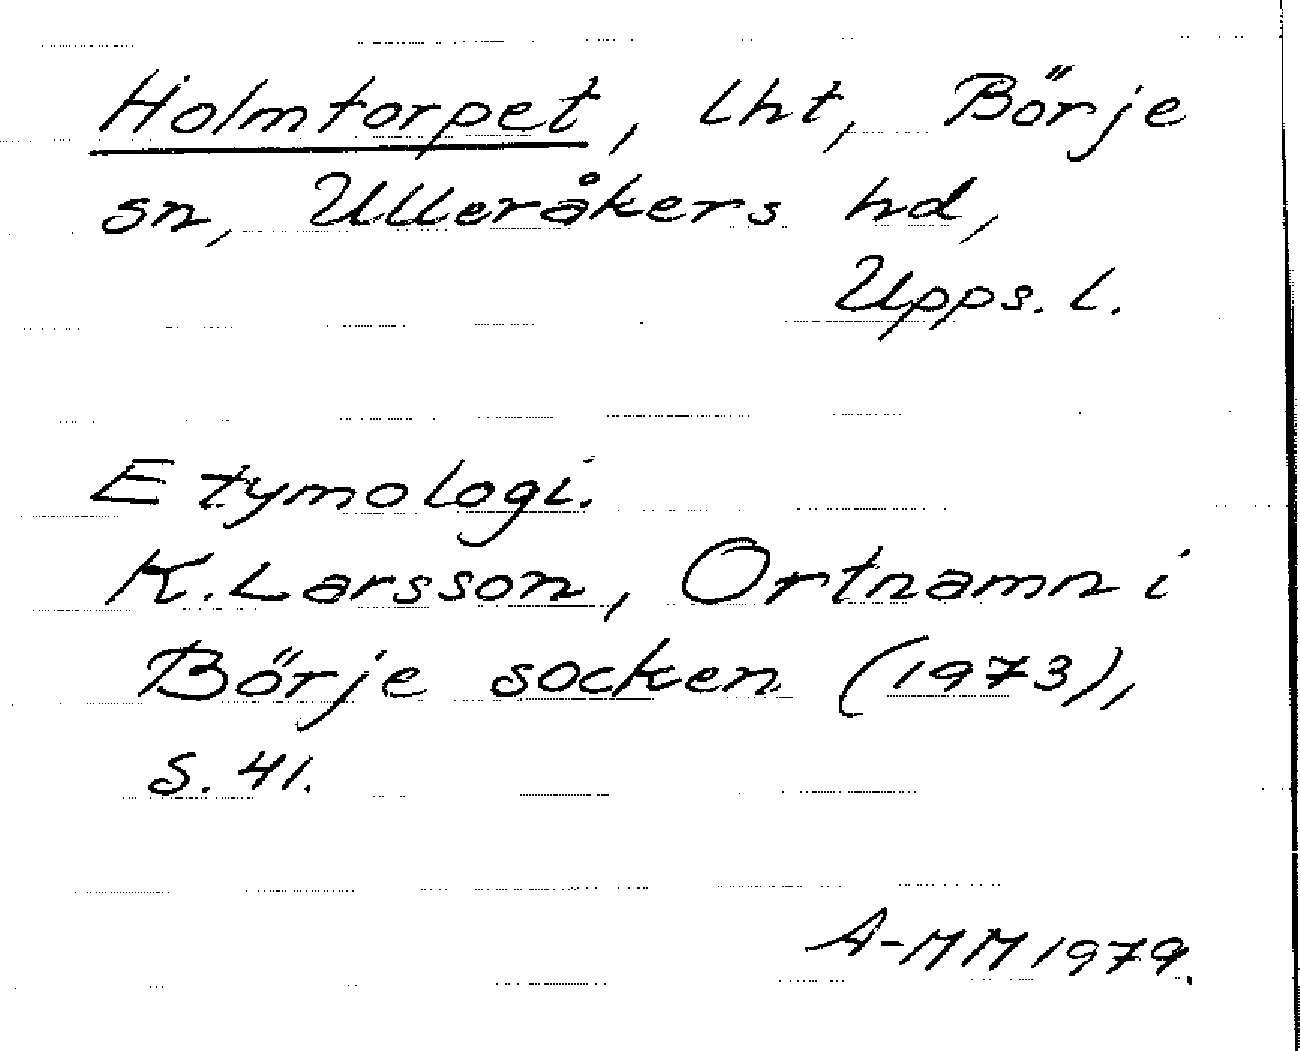 Holmtorpet, lht, Börje
sn, Ulleråkers hd,
Upps. l.
Etymologi.
K. Larsson, Ortnamn i
Börje socken (1973),
s. 41.
A-MM 1979.